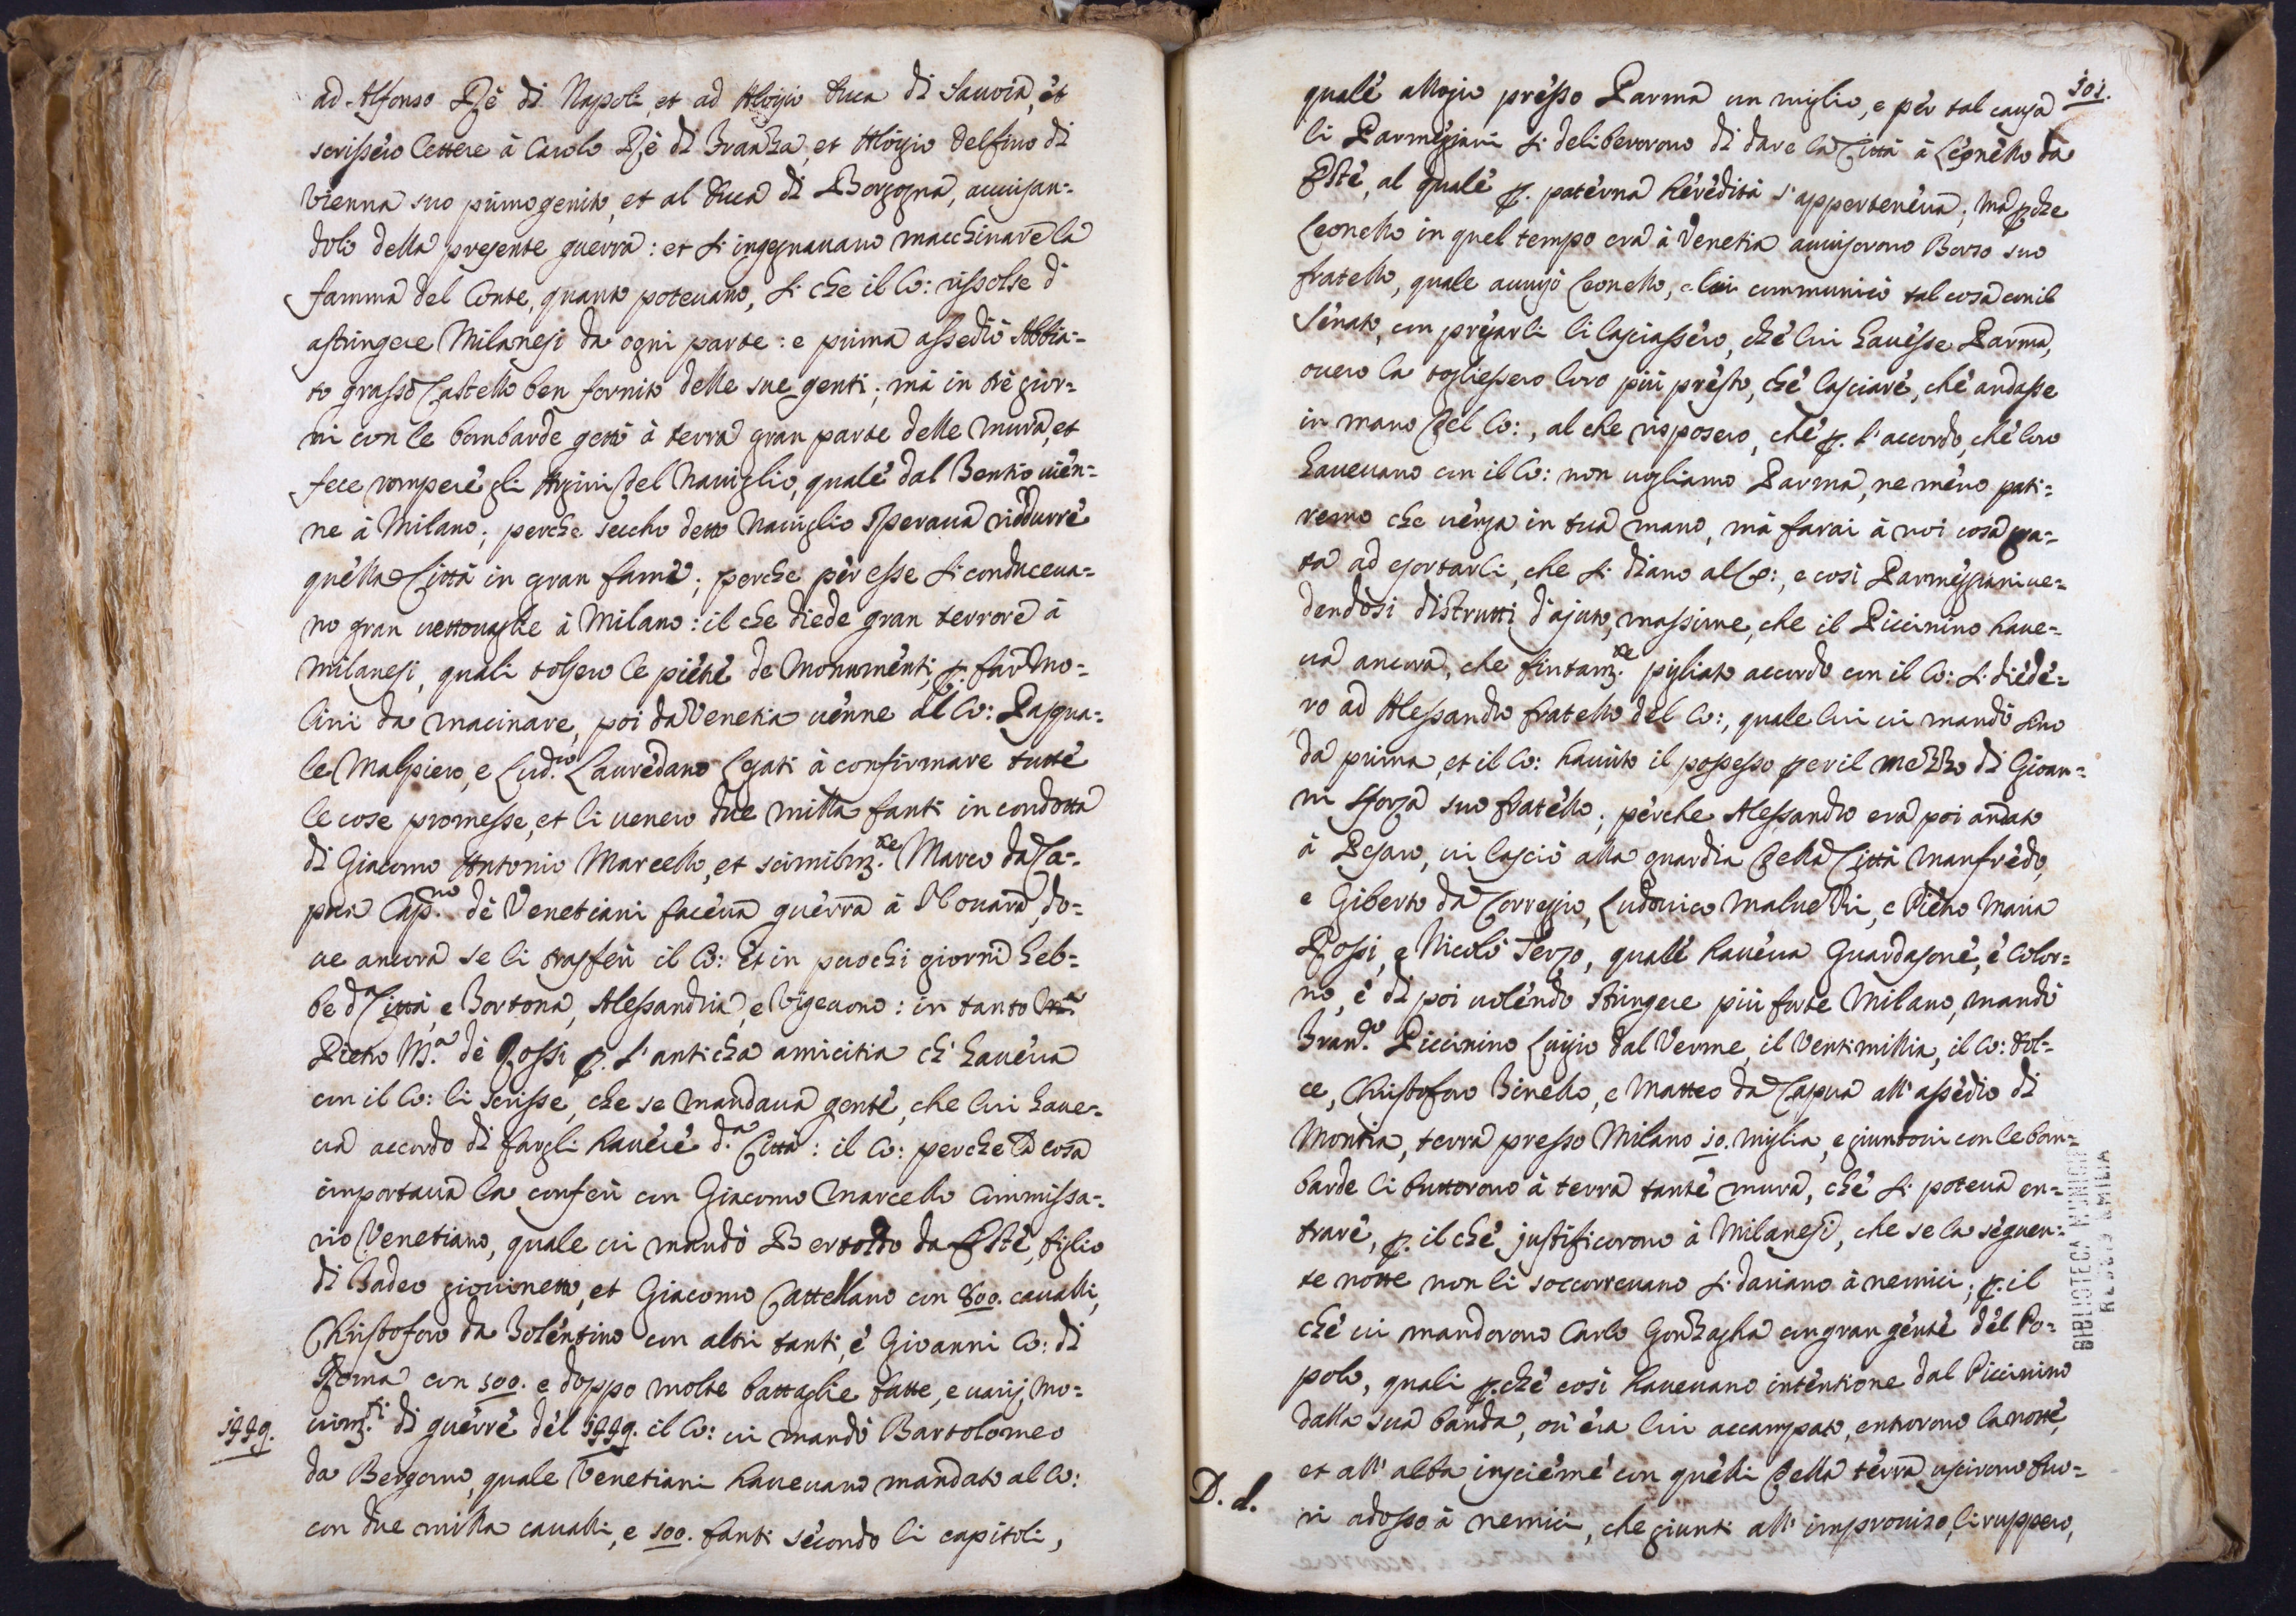 ad Alfonso Rè di Napoli, et ad Aloigio Duca di Savoia, et
scrissero lettere à Carolo Rè di Franza, et Aloigio Delfino di
Vienna suo primogenito, et al Duca di Borgogna, avvisan=
doli della presente guerra: et si ingegnavano macchinare la
famma del Conte, quanto potevano, si che il Co: rissolse di
astringere Milanesi da ogni parte: e prima assediò Abbia=
to grasso Castello ben fornito delle sue genti; mà in trè gior=
ni con le bombarde gettò à terra gran parte delle mura, et
fece rompere gli Argini del Naviglio, quale dal Tentio vien=
ne à Milano; perche seccho detto Naviglio sperava riddurre
quella Città in gran fame; perche per esse si conduceva=
no gran vettovaglie à Milano: il che diede gran terrore à
Milanesi, quali tolsero le pietre de Monumenti p. far mo=
lini da macinare, poi da Venetia venne al Co: Pasqua=
le Malpiero, e Lud.co Lauredano Legati à confirmare tutte
le cose promesse, et li venero due milla fanti in condotta
di Giacomo Antonio Marcello, et scimilm.te Marco da Ca=
pua Cap.no de Venetiani faceva guerra à Novara, do=
ve ancora se li trasferì il Co: Et in puochi giorni heb=
be d.a Città, e Tortona, Alessandria, e Vigevono: in tanto
Pietro M.a de Rossi p. l'anticha amicitia ch'haveva
con il Co: li scrisse, che se mandava gente, che lui have=
va accordo di fargli havere d.a Città: il Co: perche la cosa
importava la conferì con Giacomo Marcello Commissa=
rio Venetiano, quale vi mandò Bertoldo da Este, figlio
di Tadeo giovinetto, et Giacomo Cattellano con 800. cavalli,
Christoforo da Tolentino con altri tanti, è Giovanni Co: di
Roma con 500. e doppo molte battaglie fatte, e varij mo=
vim.ti di guerre del 1449. il Co: vi mandò Bartolomeo
1449.
da Bergomo, quale Venetiani havevano mandato al Co:
con due milla cavalli, e 500. fanti secondo li capitoli,
101.
quale allogio presso Parma un miglio, e per tal causa
li Parmegiani si deliberorono di dare la Città à Leonello da
Este, al quale p. paterna heredità s'apperteneva; mà p.che
Leonello in quel tempo era à Venetia avvisorono Borso suo
fratello, quale avvisò Leonello, e lui communicò tal cosa con il
Senato, con pregarli li lasciassero, che lui havesse Parma,
overo la togliessero loro più presto, che lasciare, che andasse
in mano del Co:, al che risposero, che p. l'accordo, che loro
havevano con il Co: non vogliamo Parma, ne meno pati=
remo che venga in tua mano, mà farai à noi cosa gra=
ta ad esortarli, che si diano al Co:, e così Parmeggiani ve=
dendosi distrutti d'ajuto, massime, che il Piccinino have=
va ancora, che fintam.te pigliato accordo con il Co: si diede=
ro ad Alessandro fratello del Co:, quale lui vi mandò sino
da prima, et il Co: havuto il possesso per il mezzo di Gioan=
ni Sforza suo fratello; perche Alessandro era poi andato
à Pesaro, vi lasciò alla guardia della Città Manfredo,
e Giberto da Correggio, Ludovico Malvezzi, e Pietro Maria
Rossi, e Nicolò Terzo, quale haveva Guardasone, è Color=
no, è di poi volendo stringere più forte Milano, mandò
Fran.co Piccinino Luigio dal Verme, il Ventimillia, il Co: Dol=
ce, Christoforo Tinello, e Matteo da Capua all'assedio di
Montia, terra presso Milano 10. miglia, e giuntovi con le bom=
barde li buttorono à terra tante mura, che si poteva en=
trare, p. il che justificorono à Milanesi, che se la seguen=
te notte non li soccorrevano si daviano à nemici; p. il
che vi mandorono Carlo Gonzagha con gran gente del Po=
polo, quali p.che così havevano intentione dal Piccinino
dalla sua banda, ov'era lui accampato, entrorono la notte,
et all'alba inscieme con quelli della terra uscirono fuo=
D. d.
ri adosso à nemici, che giunti all'improviso, li ruppero,
BIBLIOTECA MUNICIP
REGGIO EMILIA